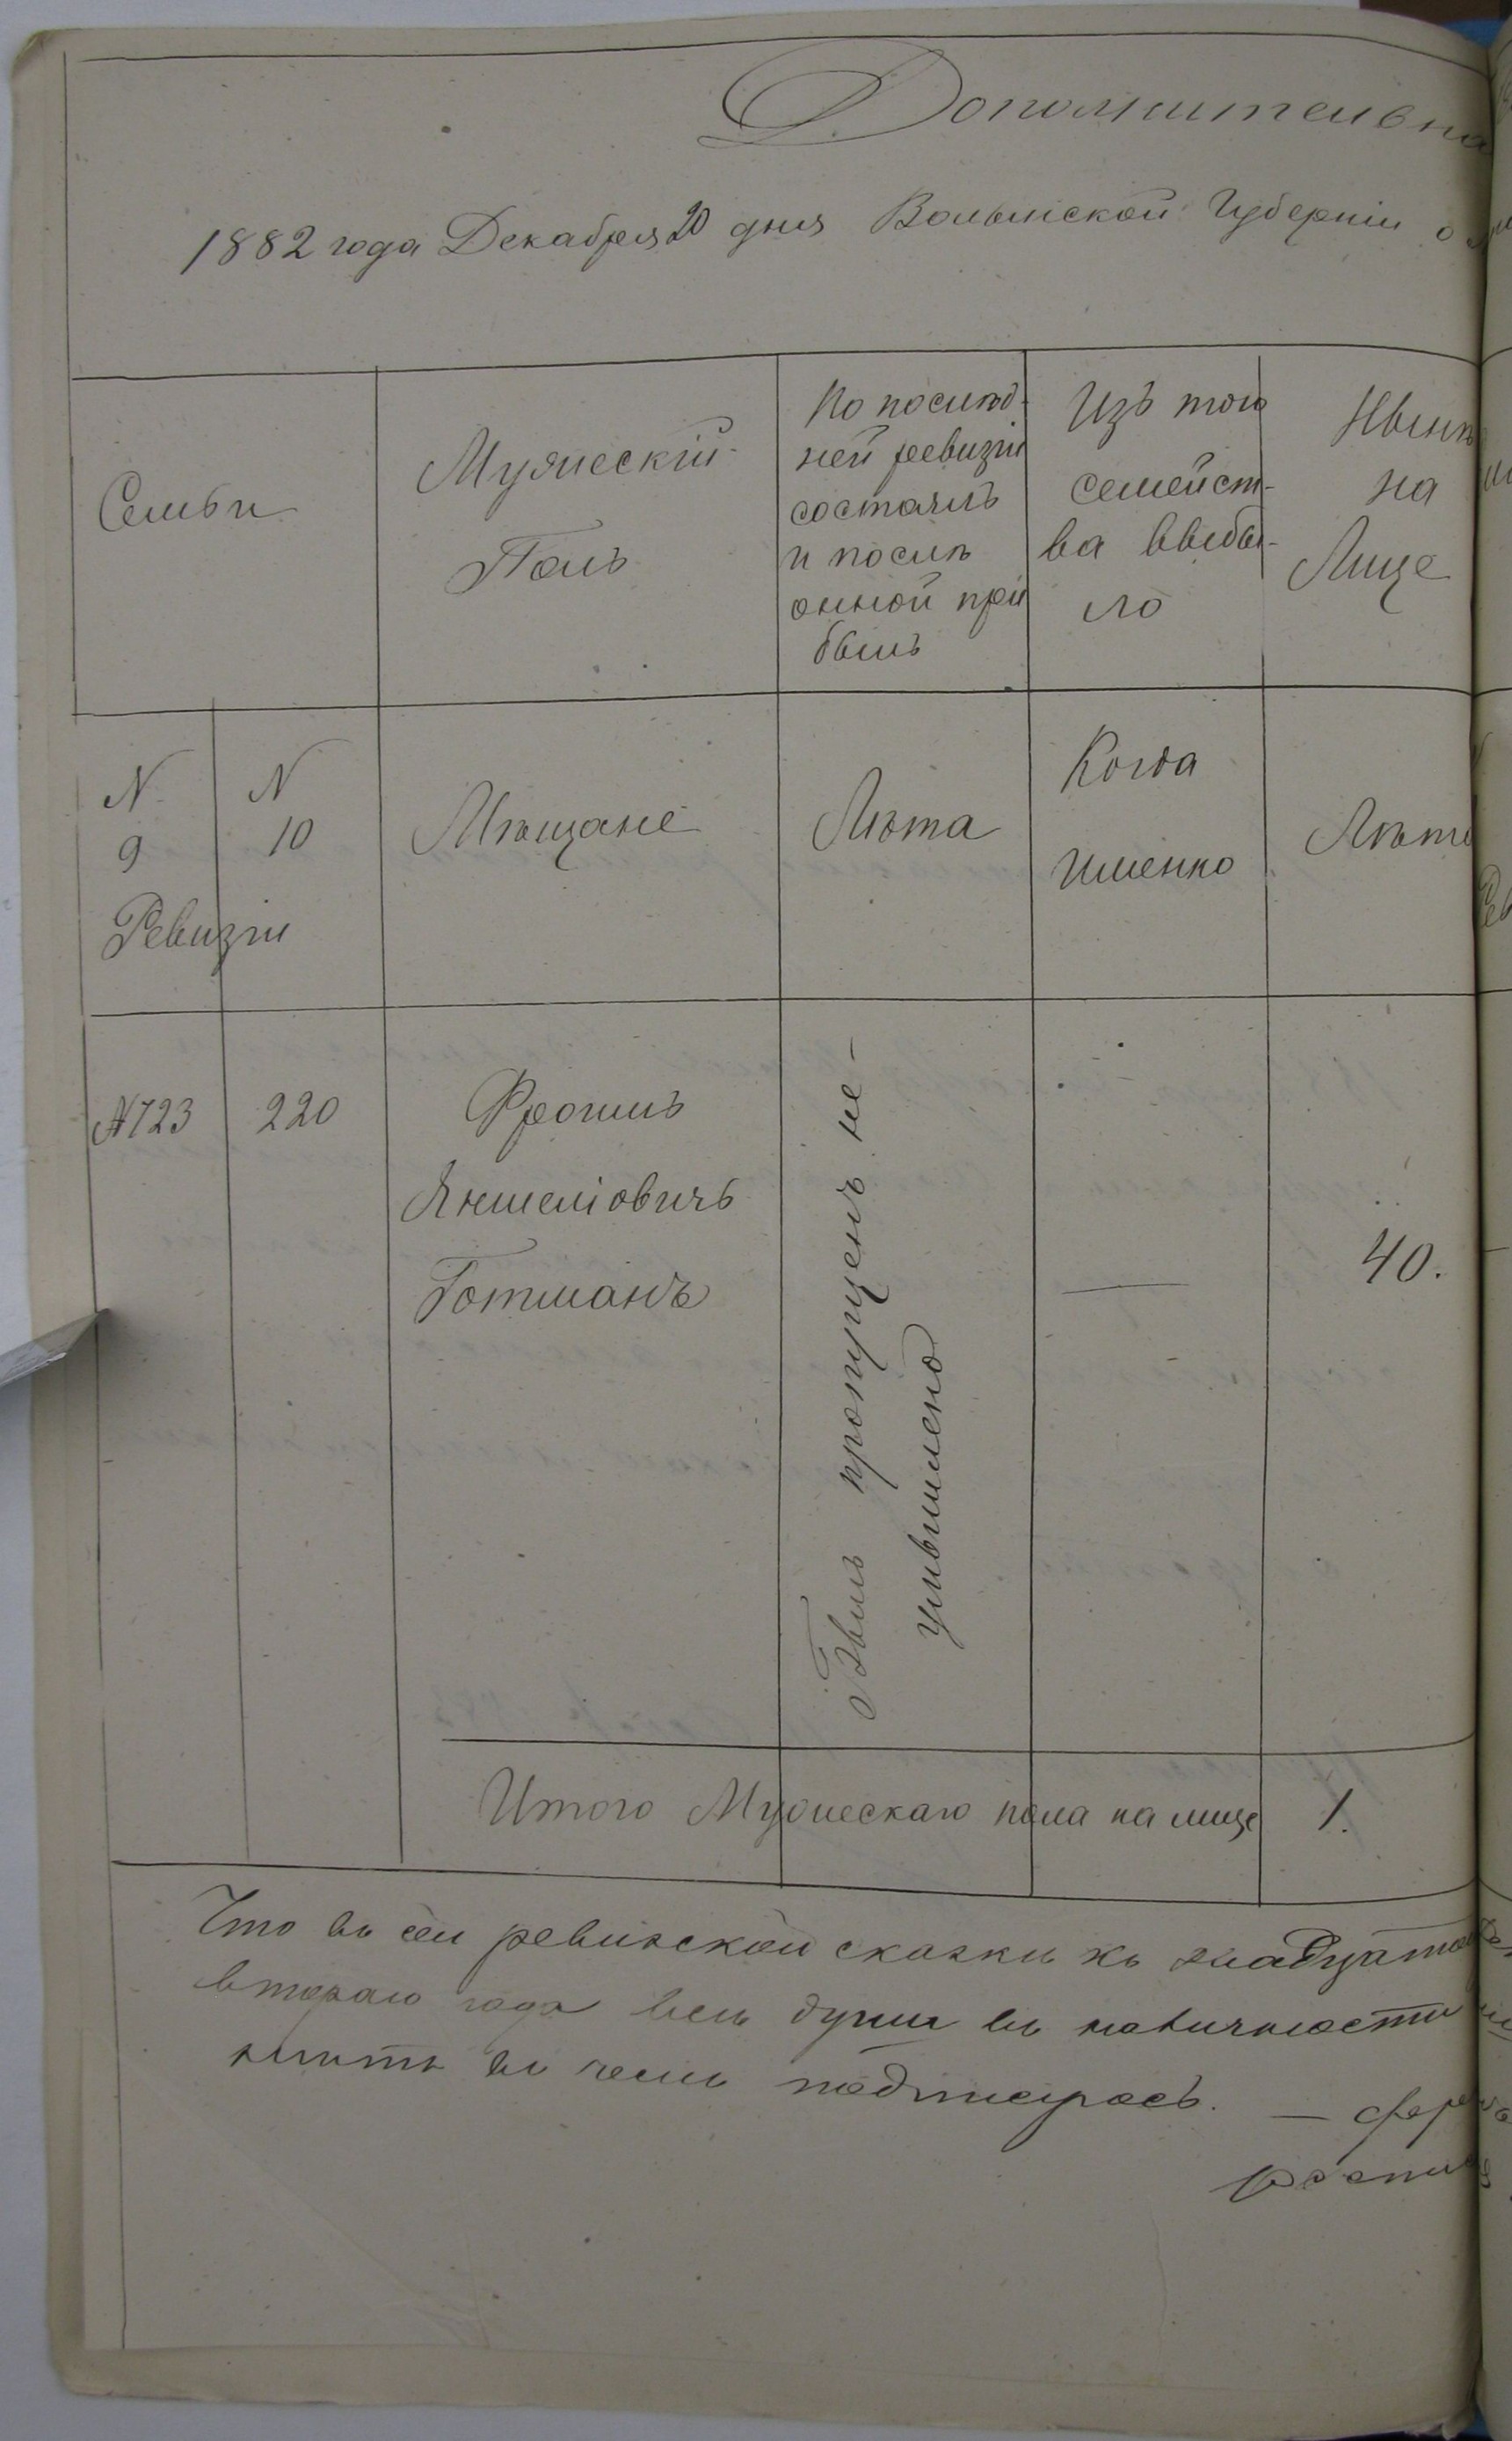 Дополнительна
1882 года Декабря 20 дня Волынской Губерніи о
Семьи
Мужескій
Полъ
По послѣд-
ней ревизіи
состоялъ
и послѣ
онной при
былъ
Изъ того
семейст-
ва выбы-
ло
Нынѣ
на
Лице
N
9
N
10
Ревизіи
Мѣщане
Лѣта
Когда
Именно
Лѣта
№723
220
Фроимъ
Яншеліовичъ
Готманъ
Былъ пропущенъ не-
умышлено
—
40.
Итого Мужескаго пола на лице
1.
Что въ сей ревизской сказки къ
втораго года всѣ души въ наличности
въ чемъ подписуюсь. —